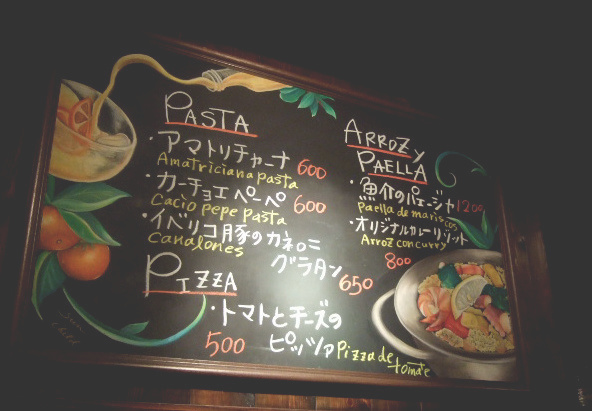 PASTA
・アマトリチャーナ 600
Amatriciana pasta
・カーチョエペーペ 600
Cacio pepe pasta
・イベリコ豚のカネロニ
Canalones
グラタン 650
PIZZA
・トマトとチーズの
500 ピッツァ Pizza de tomate
ARROZ y
PAELLA
・魚介のパエージャ 1200
Paella de mariscos
・オリジナルカレーリゾット
Arroz con curry
800